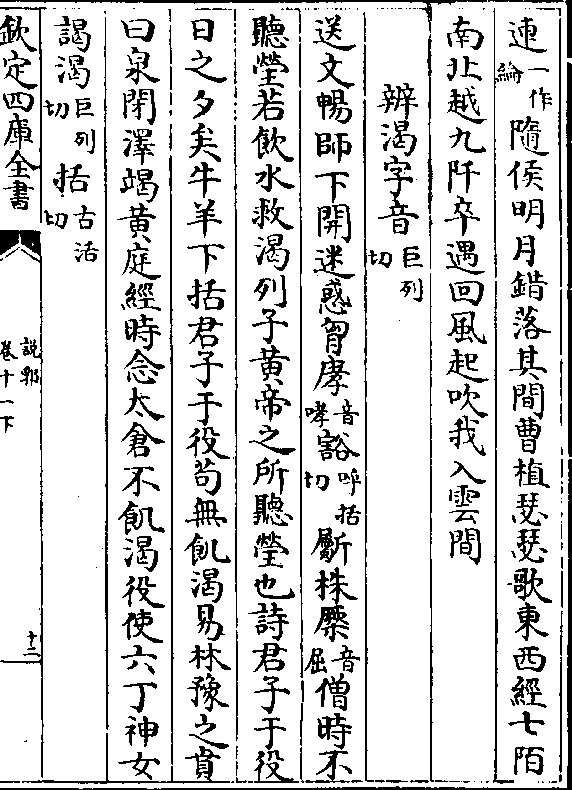 連一作綸隨侯明月錯落其間曹植瑟瑟歌東西經七陌
南北越九阡卒遇回風起吹我入雲間
辨渴字音巨列切
送文暢師下開迷惑胷庨音哮豁呼括切斸株橜音屈僧時不
聽瑩若飲水救渴列子黃帝之所聽瑩也詩君子于役
日之夕矣牛羊下括君子于役苟無飢渴易林豫之賁
曰泉閉澤竭黃庭經時念太倉不飢渴役使六丁神女
謁渴巨列切括古活切
欽定四庫全書
說郛
卷十一下
十二